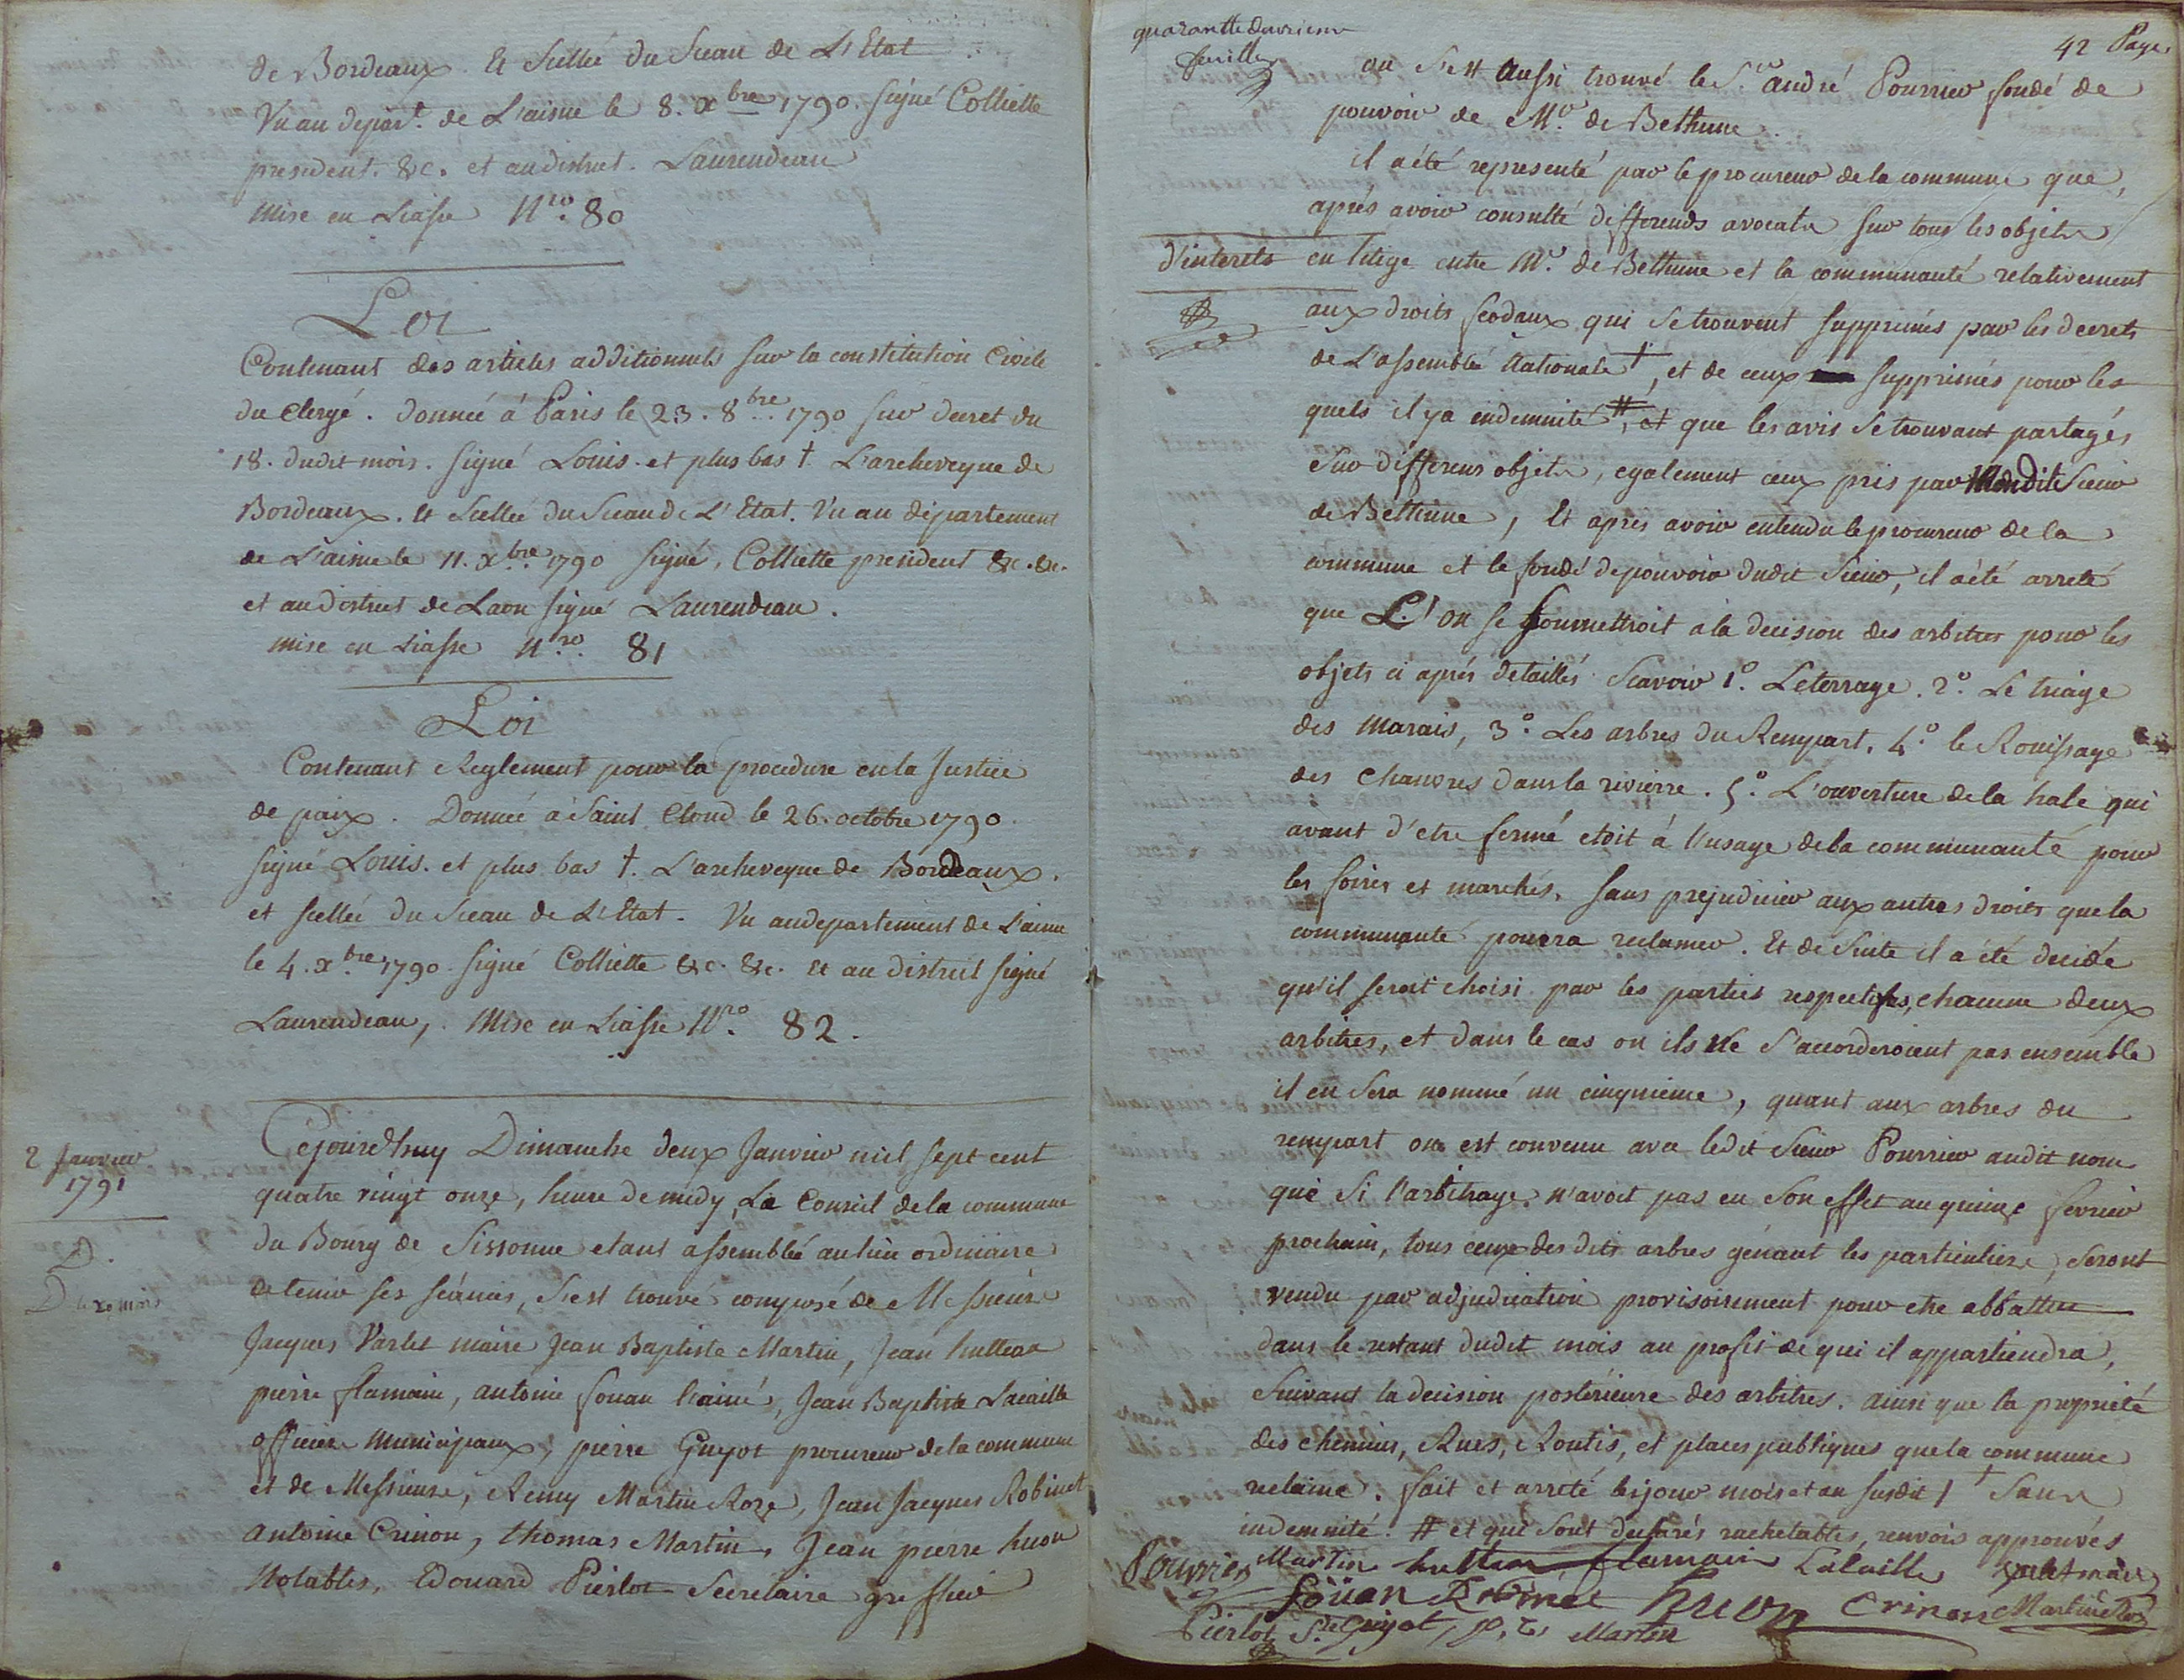 de Bordeaux. Et Scellée du Sceau de L'Etat
Vu au depart.t de L'aisne le 8. Xbre 1790. Signé Colliette
president. &c. et au district. Laurendeau
Mise en Liasse Nro. 80
Loi
Contenant des articles additionnels sur la constitution Civile
du Clergé. donnée á Paris le 23. 8bre 1790 sur decret du
18. dudit mois. Signé Louis. et plus bas †. L'archeveque de
Bordeaux. Et Scellée du Sceau de L'Etat. Vu au département
de L'aisne le 11. Xbre 1790 Signé, Colliette president &c. &c.
et au district de Laon signé Laurendeau.
mise en Liasse Nro. 81
Loi
Contenant Reglement pour la procedure en la Justice
de paix. Donnée à Saint Cloud le 26. octobre 1790.
Signé Louis. et plus bas †. L'archeveque de Bordeaux.
et scellée du Sceau de L'Etat. Vu au departement de L'aisne
le 4. Xbre 1790. Signé Colliette &c. &c. Et au District signé
Laurendeau, . Mise en Liasse Nro. 82.
2 Janvier
1791
D.
Cejourd'huy Dimanche deux Janvier mil sept cent
quatre vingt onze, heure de midy, Le Conseil de la commune
du Bourg de Sissonne etant assemblé au lieu ordinaire
de tenir ses séances, s'est trouvé composé de Messieurs
Jacques Varlet maire Jean Baptiste Martin, Jean hutteau
pierre flamain, antoine fouan l'ainé, Jean Baptiste Lacaille
officiers Municipaux, pierre Guyot procureur de la commune
et de Messieurs, Remy Martin Roze, Jean Jacques Robinet
Antoine Crinon, thomas Martin, Jean pierre huon
Notables, Edouard Pierlot Secrétaire greffier
quarantte deuxieme
feuille
42 Page
ou s'est Aussi trouvé le Sr. andré Pourrier fondé de
pouvoir de Mr. de Bethune
il a été representé par le procureur de la commune que,
après avoir consulté differends avocats sur tous les objets
d'interets en litige entre Mr. de Bethune et la communauté relativement
aux droits feodaux qui se trouvent supprimés par les decrets
de L'assemblé Nationale †, et de ceux supprimés pour les
quels il y a indemnité #, et que les avis se trouvant partagés
Sur differens objets, egalement ceux pris par Mondit Sieur
de Bethune, Et apres avoir entendu le procureur de la
commune et le fondé de pouvoir dudit Sieur, il a été arreté
que L'on se soumettroit à la decision des arbitres pour les
objets ci aprés detaillés Scavoir 1º. Le terrage. 2º. Le triage
des Marais, 3º. Les arbres du Rempart. 4º le Rouissage
des Chanvres dans la rivierre. 5º. L'ouverture de la hale qui
avant d'etre fermé etoit à l'usage de la communauté pour
les foires et marchés. Sans prejudicier aux autres droits que la
communauté pourra reclamer. Et de Suite il a été decidé
qu'il seroit choisi par les parties respectives, chacune deux
arbitres, et dans le cas ou ils Ne s'accorderoient pas ensemble
il en sera nommé un cinquieme, quant aux arbres du
rempart on est convenu avec ledit Sieur Pourrier audit nom
que Si l'arbitrage n'avoit pas eu son effet au quinze fevrier
prochain, tous ceux des dits arbres génant les particuliers, seront
vendu par adjudication provisoirement pour etre abbattu
dans le restant dudit mois au profit de qui il appartiendra,
Suivant la decision postérieure des arbitres. ainsi que la proprieté
des chemins, Rues, Routis, et places publiques que la commune
reclaime. fait et arreté les jour mois et an susdit / † Sans
indemnité. # et qui sont declarés rachetables, renvois approuvés
Pourrier Martin hutteau flamain Lacaille varlet maire
foüan Robinet huon Crinon Martin Roze
Pierlot S.re Guyot, p, Martin